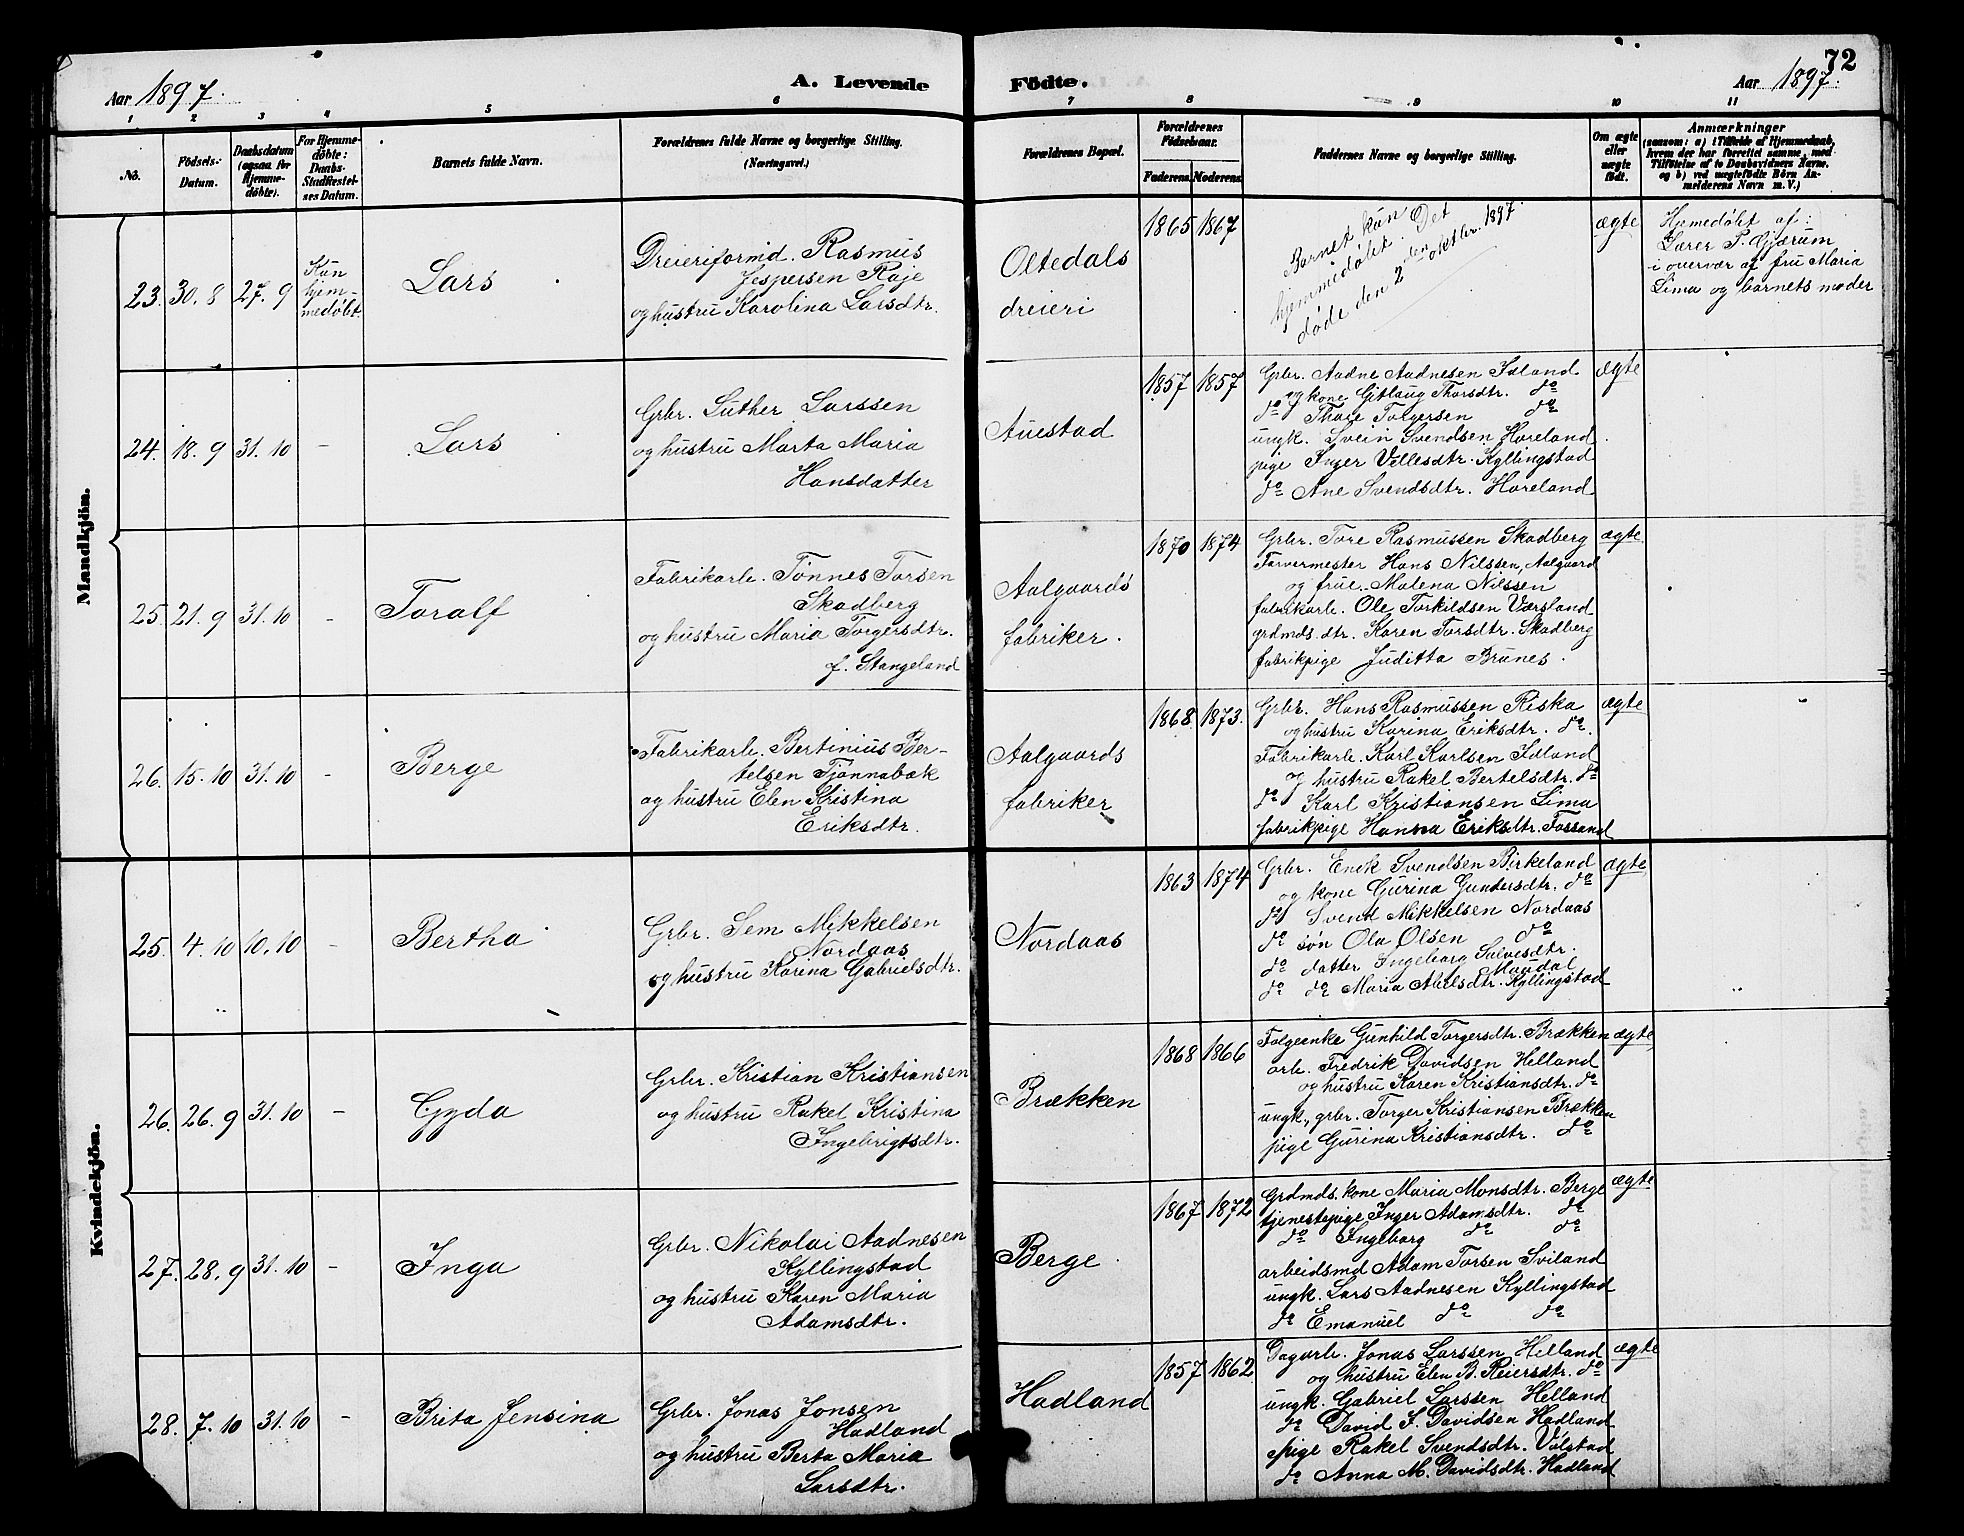 72
Aar 1897. A. Levende Födte. Aar 1897.
1 2 3 4 5 6 7 8 9 10 11
No.
Födsels-
Datum.
Daabsdatum
(ogsaa for
Hjemme-
döbte).
For Hjemme-
döbte:
Daabs-
Stadfæstel-
ses Datum.
Barnets fulde Navn.
Forældrenes fulde Navne og borgerlige Stilling.
(Næringsvei.)
Forældrenes Bopæl.
Forældrenes
Födselsaar.
Faderens. Moderens.
Faddernes Navne og borgerlige Stilling.
Om ægte
eller
uægte
födt.
Anmærkninger
(saasom: a) i Tilfælde af Hjemmedaab,
hvem der har forrettet samme, med
Tilföielse af to Daabsvidners Navne,
og b) ved uægtefödte Börn An-
melderens Navn m. V.)
Mandkjön.
23. 30. 8 27. 9
Kun
hjem-
medøbt.
Lars
Dreieriformd. Rasmus
Jespersen Raje
og hustru Karolina Larsdtr.
Oltedals
dreieri
1865 1867
Barnet kun
hjemmedøbt. Det
døde den 2den oktbr. 1897.
ægte
Hjemedøbt af:
Lærer P. Gjærum
i overvær af fru Maria
Lima og barnets moder
24. 18. 9 31. 10 -
Lars
Grbr. Luther Larssen
og hustru Marta Maria
Hansdatter
Auestad
1857 1857
Grbr. Aadne Aadnesen Idland
og kone Gitlaug Thorsdtr. do
do Thore Torgersen do
ungk. Svein Svendsen Hareland
pige Inger Vellesdtr. Kyllingstad
do Ane Svendsdtr. Hareland
ægte
25 21. 9 31. 10 -
Toralf
Fabrikarb. Tønnes Torsen
Skadberg
og hustru Maria Torgersdtr.
f. Stangeland
Aalgaards
fabriker.
1870 1874
Grbr. Tore Rasmussen Skadberg
Farvermester Hans Nilssen, Aalgaard
og frue Malena Nilssen
fabrikarb. Ole TorkildsenVærsland
grdmds. dtr. Karen Torsdtr. Skadberg
fabrikpige Juditta Brunes.
ægte
26. 15. 10 31. 10 -
Berge
Fabrikarb. Bertinius Ber-
telsen Tjønnabæk
og hustru Elen Kristina
Eriksdtr.
Aalgaards
fabriker
1868 1873.
Grbr. Hans Rasmussen Riska
og hustru Karina Eriksdtr. do.
Fabrikarb. Karl Karlsen Idland
og hustru Rakel Bertelsdtr. do
do Karl Kristiansen Lima
fabrikpige Hanna Eriksdtr. Fossand
ægte
Kvindekjön.
25. 4. 10 10. 10 -
Bertha
Grbr. Sem Mikkelsen
Nordaas
og hustru Karina Gabrielsdtr.
Nordaas
1863 1874
Grbr. Enok Svendsen Birkeland
og kone Gurina Gundersdtr. do
do Svend Mikkelsen Nordaas
do søn Ola Olsen do
do datter Ingeborg Salvesdtr.
Maudal
do do Maria Abelsdtr. Kyllingstad
ægte
26. 26. 9 31. 10 -
Gyda
Grbr. Kristian Kristiansen
og hustru Rakel Kristina
Ingebrigtsdtr.
Brækken
1868 1866
Folgeenke Gunhild Torgersdtr. Brækken
arb. Fredrik Davidsen Helland
og hustru Karen Kristiansdtr. do
ungk., grbr. Torger Kristiansen Brækken
pige Gurina Kristiansdtr. do
ægte
27. 28. 9 31. 10 -
Inga
Grbr. Nikolai Aadnesen
Kyllingstad
og hustru Karen Maria
Adamsdtr.
Berge
1867 1872
Grdmds. kone Maria Monsdtr. Berge
tjenestepige Inger Adamsdtr. do
do Ingeborg do do
arbeidsmd Adam Torsen Sviland
ungk. Lars Aadnesen Kyllingstad
do Emanuel do do
ægte
28. 7. 10 31. 10 -
Brita Jensina
Grbr. Jonas Jonsen
Hadland
og hustru Berta Maria
Larsdtr.
Hadland
1857 1862
Dagarb. Jonas Larssen Helland
og hustru Elen B. Reiersdtr. do
ungk. Gabriel Larssen Helland
do David S. Davidsen Hadland
pige Rakel Svendsdtr. Vølstad
do Anna M. Davidsdtr. Hadland
ægte